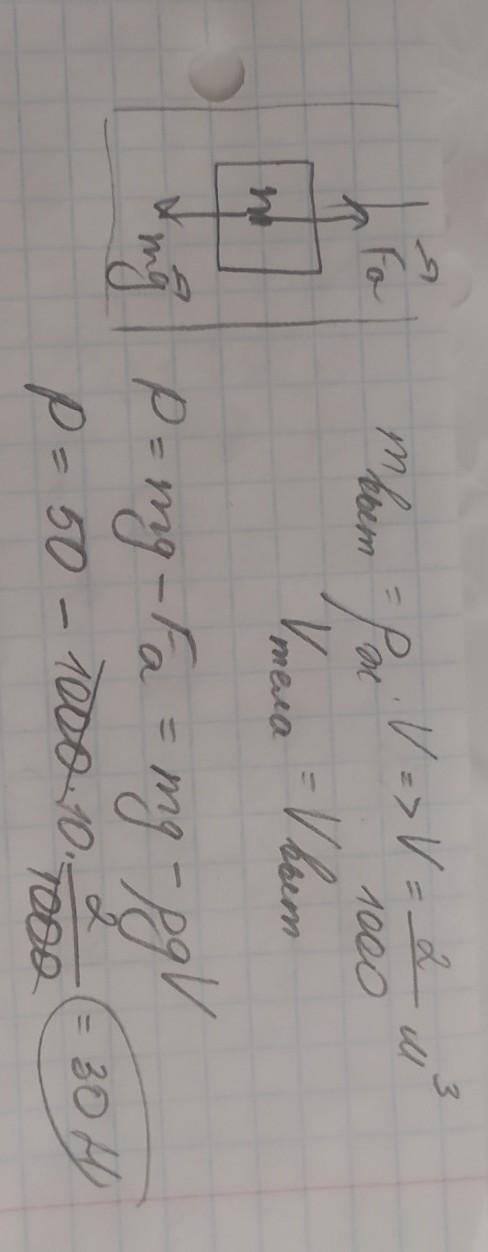 Fa
m
mg
m выт = ρж · V => V = 2/1000 м³
V тела = V выт
P = mg - Fa = mg - ρgV
P = 50 - 1000 · 10 · 2/1000 = 30 Н